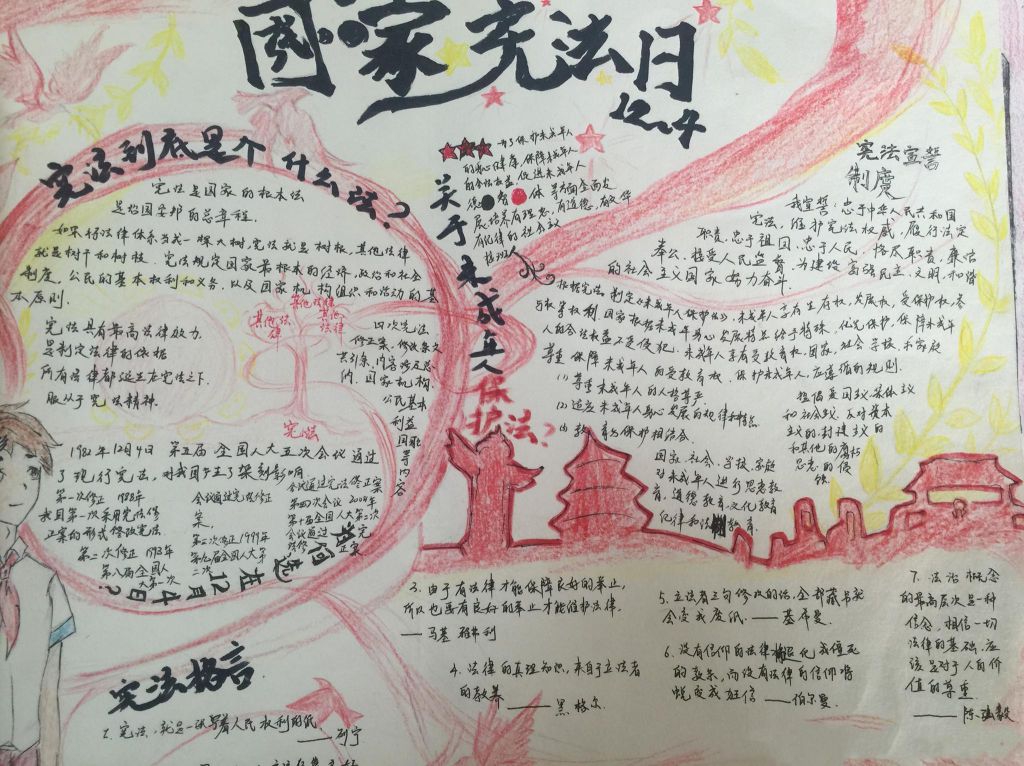 国家宪法日
12.4
宪法到底是个什么法?
宪法是国家的根本法
是治国安邦的总章程.
如果将法律体系当成一棵大树,宪法就是树根,其他法律
就是树干和树枝.宪法规定国家最根本的经济,政治和社会
制度,公民的基本权利和义务,以及国家机构组织和活动的基
本原则.
宪法具有最高法律效力
是制定法律的依据
所有法律都诞生在宪法之下.
服从于宪法精神.
其他法律
其他法律
其他法律
宪法
四次宪法
修正案,修改条文
共31条,内容涉及总
纲、国家机构、
公民基本
利益
国歌
等内容
1982年12月4日 第五届全国人大五次会议通过
了现行宪法,对我国产生了深刻影响
第一次修正 1988年
我国第一次采用宪法修
正案的形式修改宪法
第二次修正 1993年
第八届全国人
大第一次
会议通过宪法修正
案.
第三次修正1999年
第九届全国人大第
二次
会议通过宪法修正案
第四次会议 2004年
第十届全国人大第二次
会议通过宪
法修正案
为何选在12月4日?
关于未成年人保护法?
为了保护未成年人
的身心健康,保障未成年人
的合法权益,促进未成年人
德 智 体 等方面全面发
展,培养有理想,有道德,有文化
有纪律的社会主义
接班人
根据宪法,制定《未成年人保护法》,未成年人享有生存权,发展权,受保护权,参
与权等权利,国家根据未成年身心发展特点给予特殊,优先保护,保障未成年
人的合法权益不受侵犯.未成年人享有受教育权,国家,社会,学校和家庭
尊重保障未成年人的受教育权.保护未成年人,应遵循的规则.
(1) 尊重未成年人的人格尊严
(2) 适应未成年人身心发展的规律和特点
(3) 教育与保护相结合.
国家,社会,学校,家庭
对未成年人进行思想教
育,道德教育,文化教育
纪律和法制教育.
提倡爱国主义,集体主义
和社会主义,反对资本
主义的,封建主义的
和其他的腐朽
思想的侵
蚀.
宪法宣誓
制度
我宣誓:忠于中华人民共和国
宪法,维护宪法权威,履行法定
职责,忠于祖国,忠于人民,恪尽职责,廉洁
奉公,接受人民监督,为建设富强民主,文明,和谐
的社会主义国家努力奋斗.
宪法格言
2.宪法,就是一张写着人民权利的纸
——列宁
3.由于有法律才能保障良好的举止,
所以也要有良好的举止才能维护法律.
——马基雅弗利
4.法律的真理知识,来自于立法者
的教养
——黑格尔
5.立法者三句修改的话,全部藏书就
会变成废纸.——基希曼.
6.没有信仰的法律将退化成僵死
的教条,而没有法律的信仰将
蜕变成狂信——伯尔曼.
7.法治概念
的最高层次是一种
信念,相信一切
法律的基础,应
该是对于人的价
值的尊重
——陈弘毅